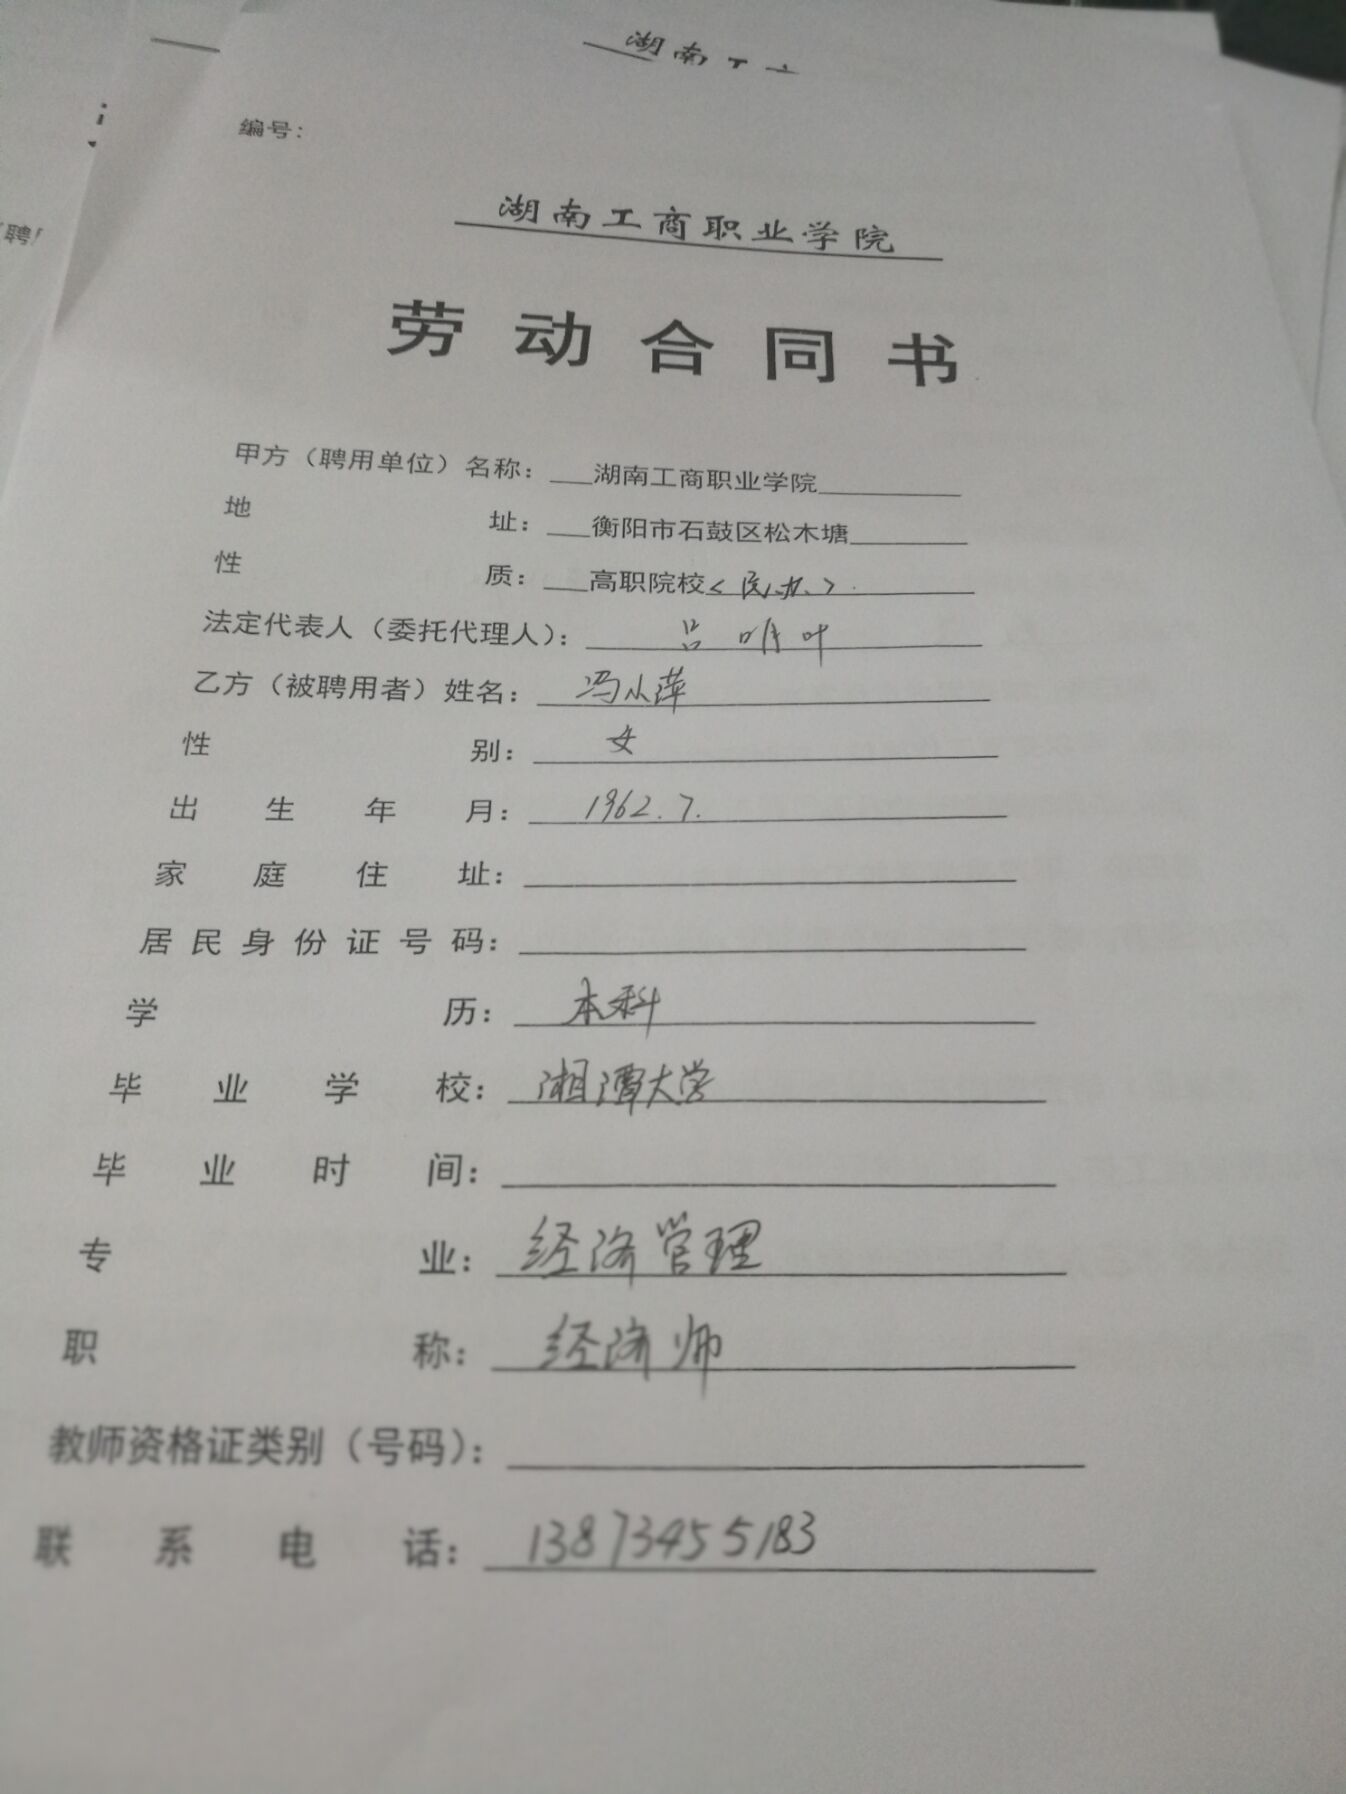 湖南工
编号：
聘
湖南工商职业学院
劳动合同书
甲方（聘用单位）名称：湖南工商职业学院
地址：衡阳市石鼓区松木塘
性质：高职院校＜民办＞
法定代表人（委托代理人）：吕明叶
乙方（被聘用者）姓名：冯小萍
性别：女
出生年月：1962.7.
家庭住址：
居民身份证号码：
学历：本科
毕业学校：湘潭大学
毕业时间：
专业：经济管理
职称：经济师
教师资格证类别（号码）：
联系电话：13873455183